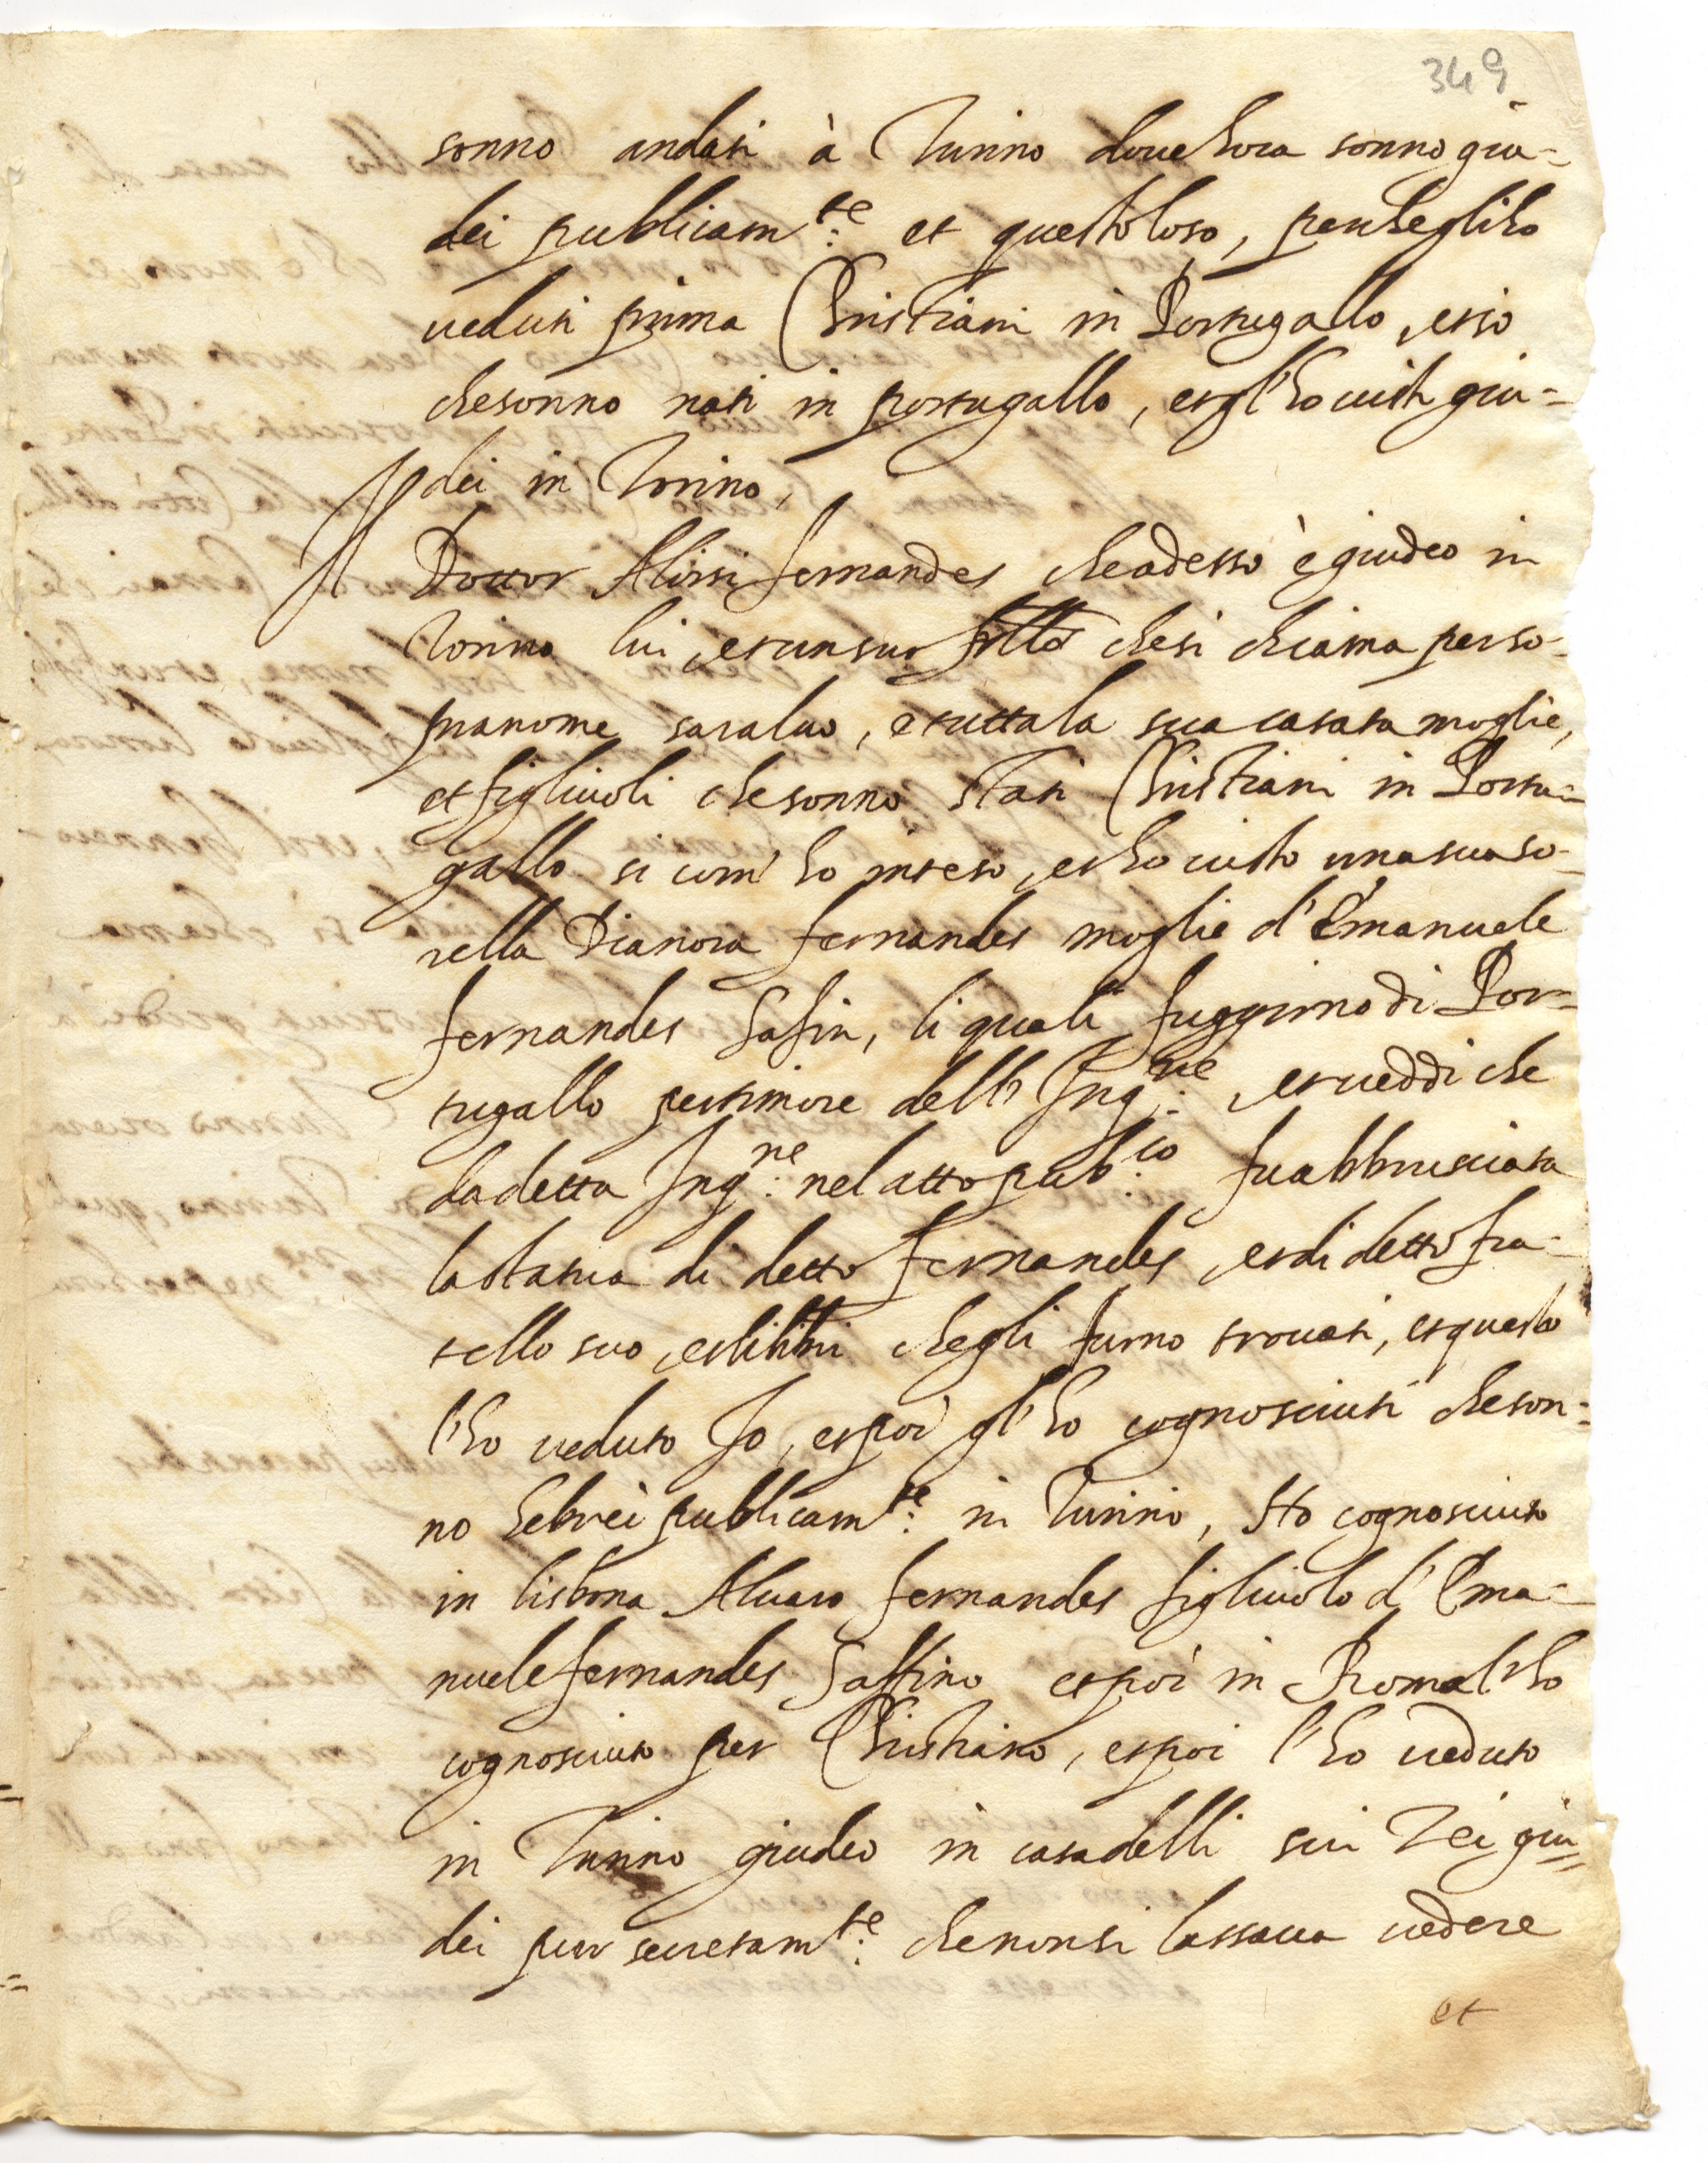 349
sonno andati à Turino doue hora sonno giu-
dei publicam.te et questo lo so, perche gli ho
ueduti prima Christiani in Portugallo, et so
che sonno nati in portugallo, et gl'ho uisti giu=
dei in Torino,
Il Dottor fernandes che adesso è giudeo in
Torino lui, et un suo che si chiama per so-
pranome saraluo, e tutta la sua casata moglie,
et figliuoli che sonno stati Christiani in Portu=
gallo si com' ho inteso, et ho uisto una sua so-
rella Dianora fernandes moglie d'Emanuele
fernandes Safin, li quali fuggirno di Por=
tugallo per timore dell' Inq.ne, et ueddi che
da detta Inq.ne nel atto pub.co fu abbrusciata
la statua di detto fernandes, et di detto fra-
tello suo, et li libri che gli furno trouati, et questo
l'ho ueduto Io, et poi gl'ho cognosciuti che son=
no hebrei publicam.te in Turino, Ho cognosciuto
in lisbona Aluaro fernandes figliuolo d'Ema=
nuele fernandes Saffino et poi in Roma l'ho
cognosciuto per Christiano, et poi l'ho ueduto
in Turino giudeo in casa delli sui Zei giu=
dei pur secretam.te che non si lassaua uedere
et